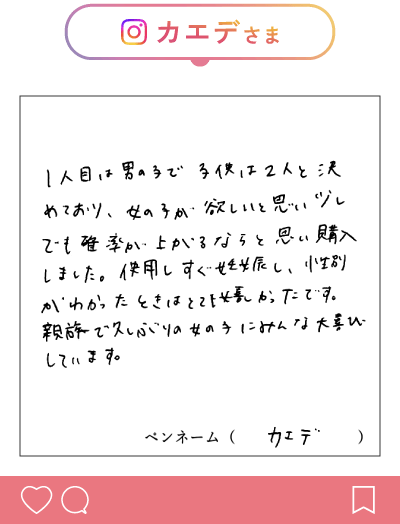 カエデさま
1人目は男の子で 子供は2人と決
めており、女の子が欲しいと思い少し
でも確率が上がるならと思い購入
しました。使用しすぐ妊娠し、性別
がわかったときはとても嬉しかったです。
親族で久しぶりの女の子にみんな大喜び
しています。
ペンネーム（ カエデ ）